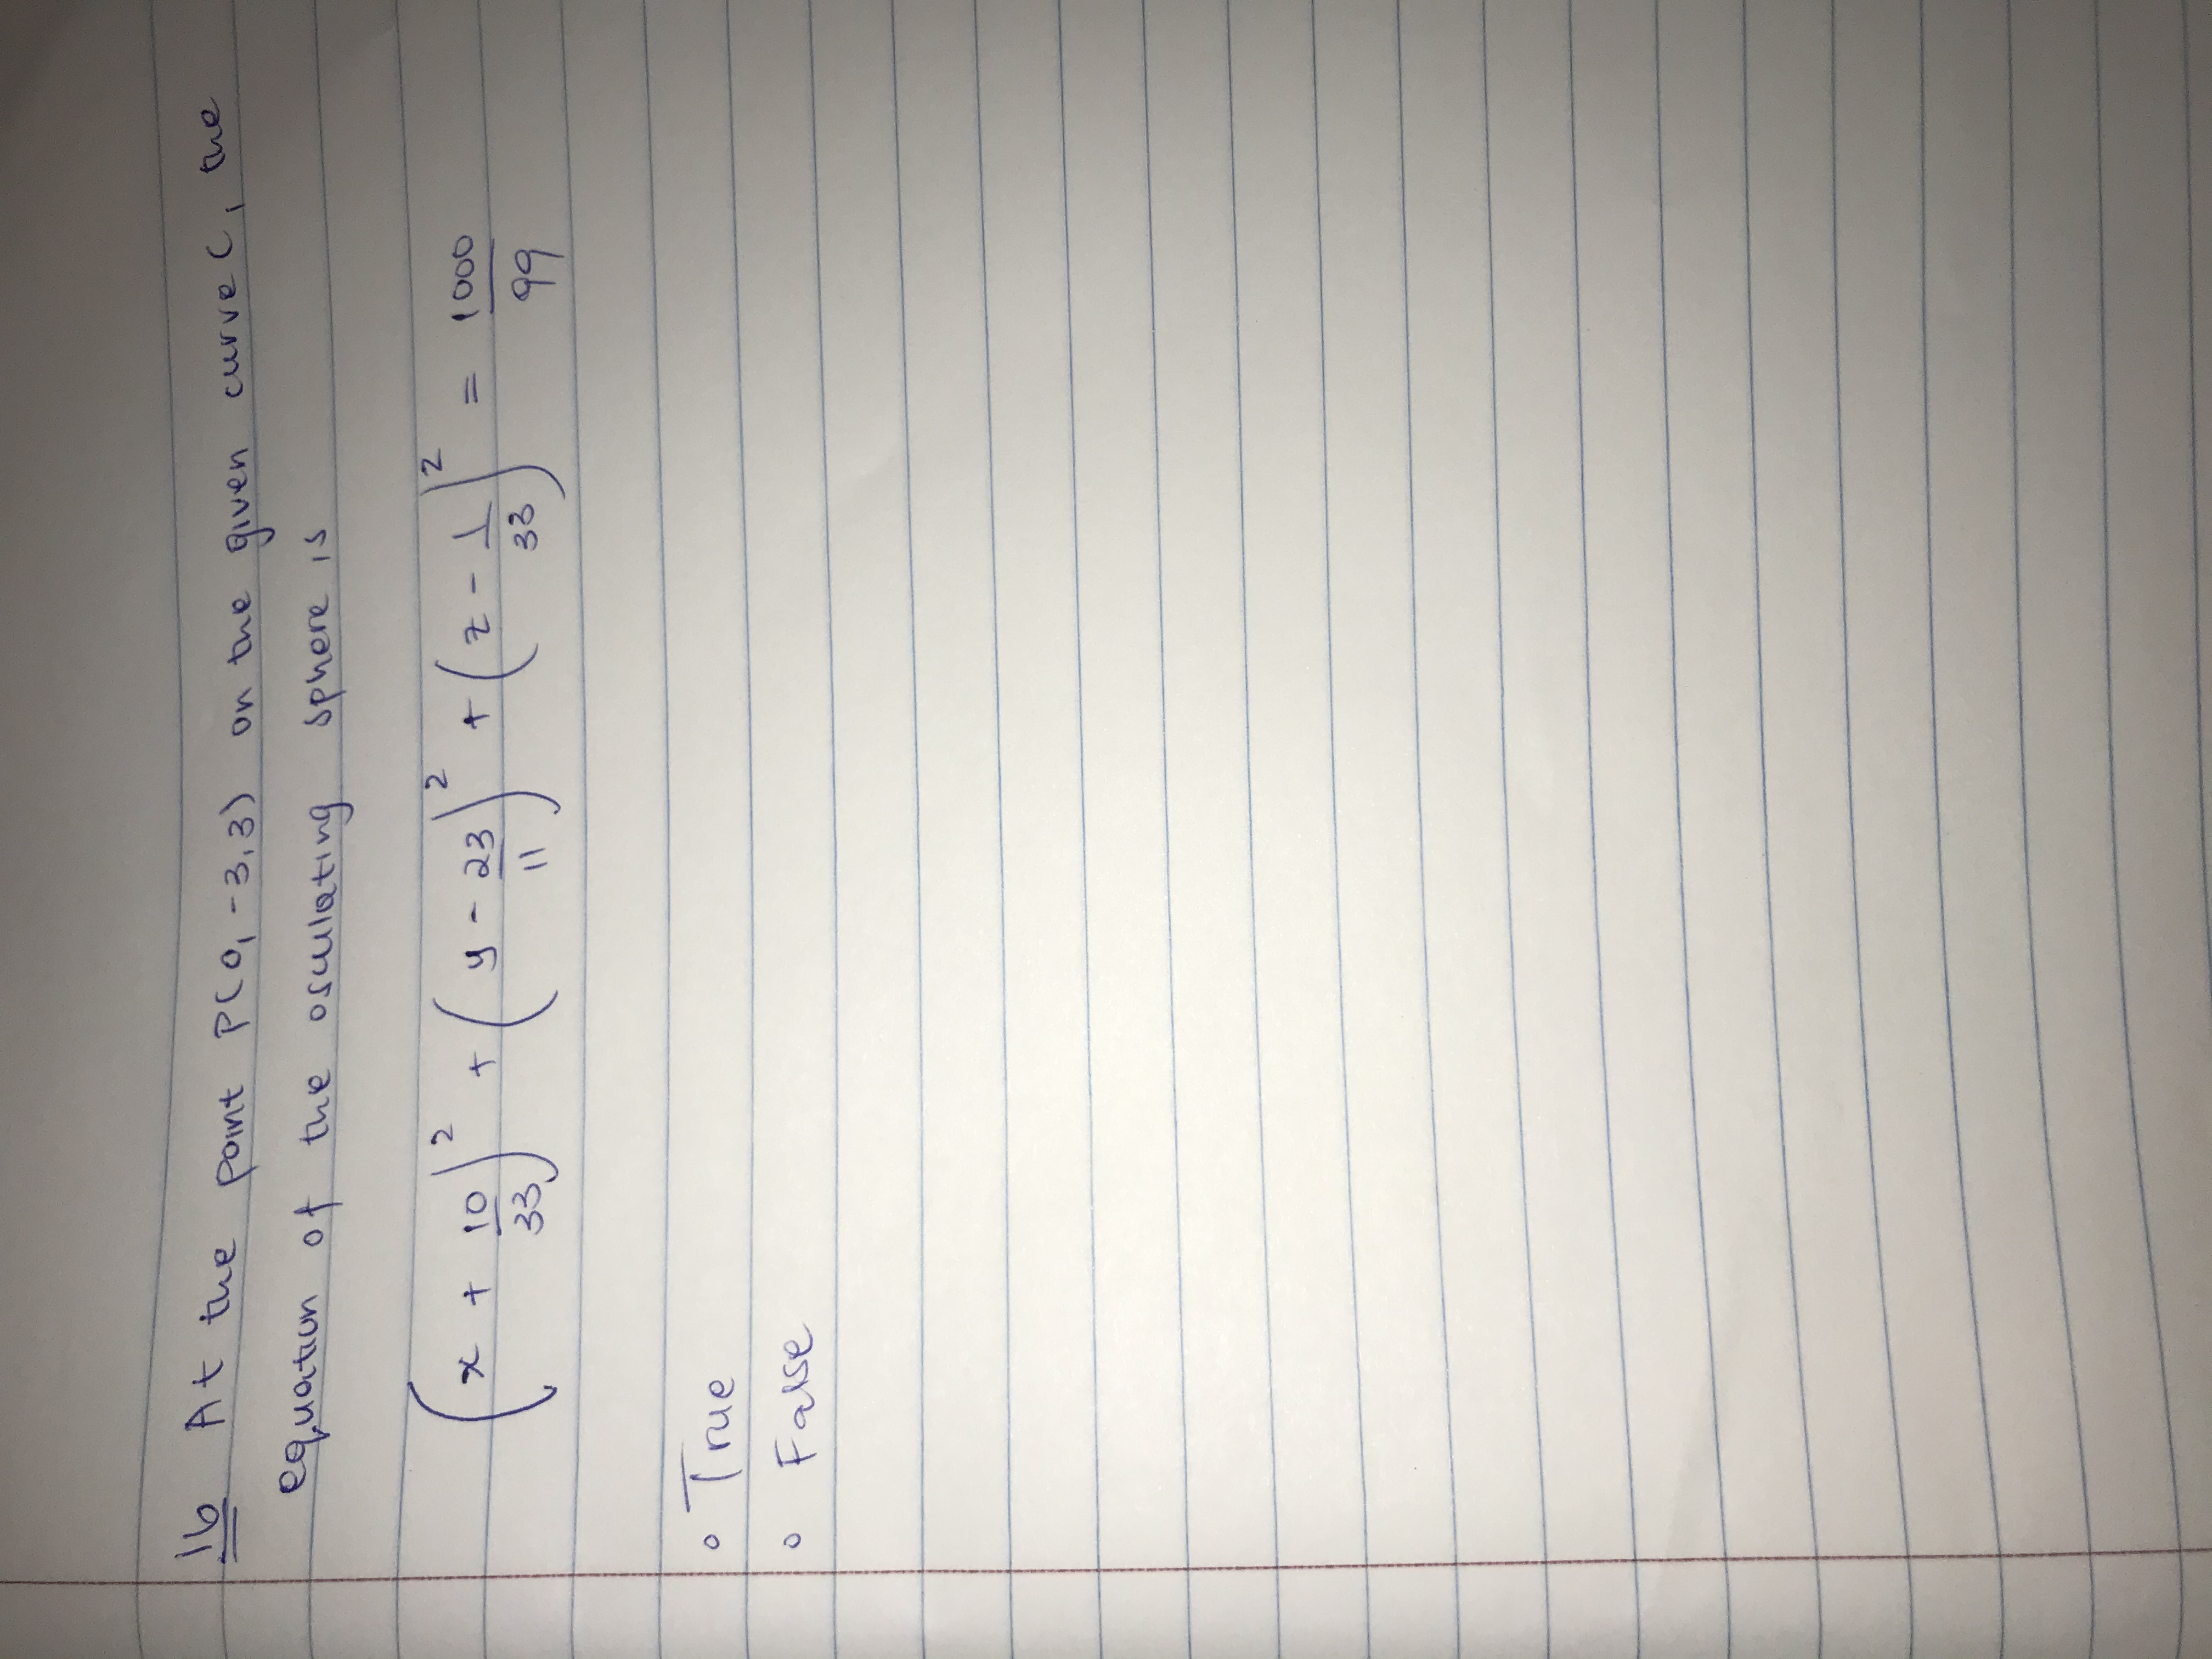 16 At the point P(0,-3,3) on the given curve C, the
equation of the osculating sphere is
(x + 10/33)² + (y - 23/11)² + (z - 1/33)² = 1000/99
∘ True
∘ False